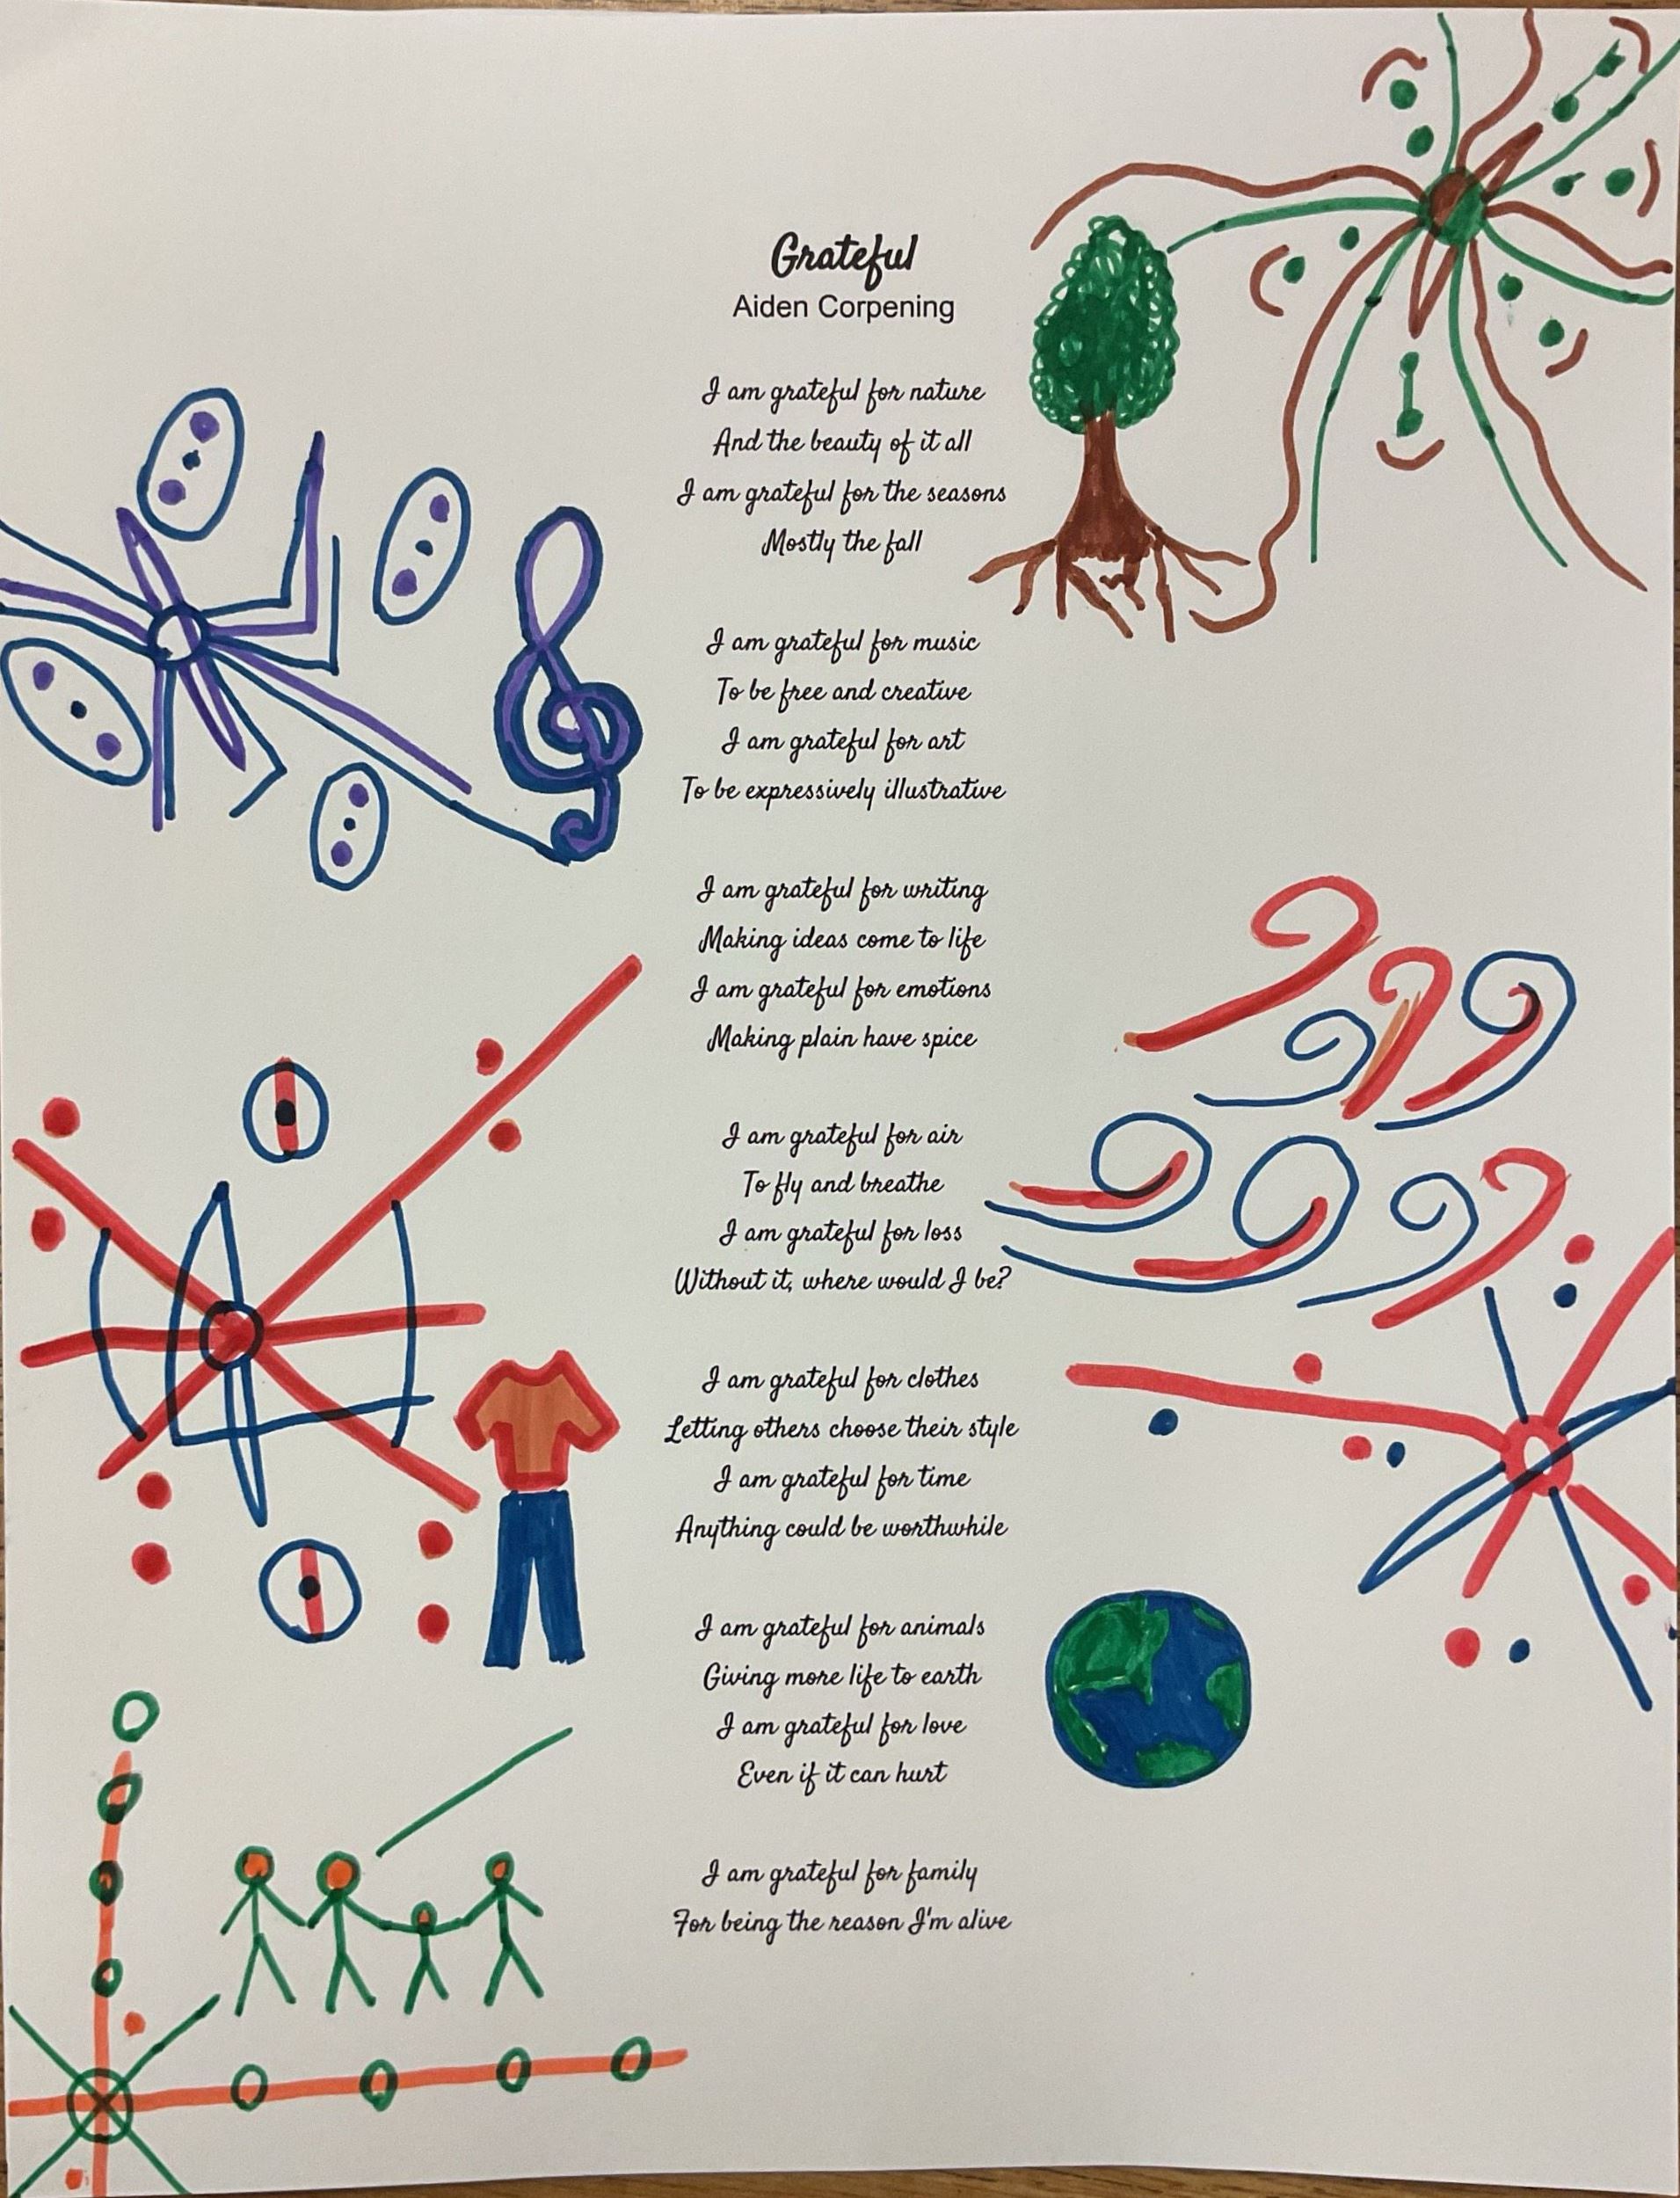 Grateful
Aiden Corpening
I am grateful for nature
And the beauty of it all
I am grateful for the seasons
Mostly the fall
I am grateful for music
To be free and creative
I am grateful for art
To be expressively illustrative
I am grateful for writing
Making ideas come to life
I am grateful for emotions
Making plain have spice
I am grateful for air
To fly and breathe
I am grateful for loss
Without it, where would I be?
I am grateful for clothes
Letting others choose their style
I am grateful for time
Anything could be worthwhile
I am grateful for animals
Giving more life to earth
I am grateful for love
Even if it can hurt
I am grateful for family
For being the reason I'm alive